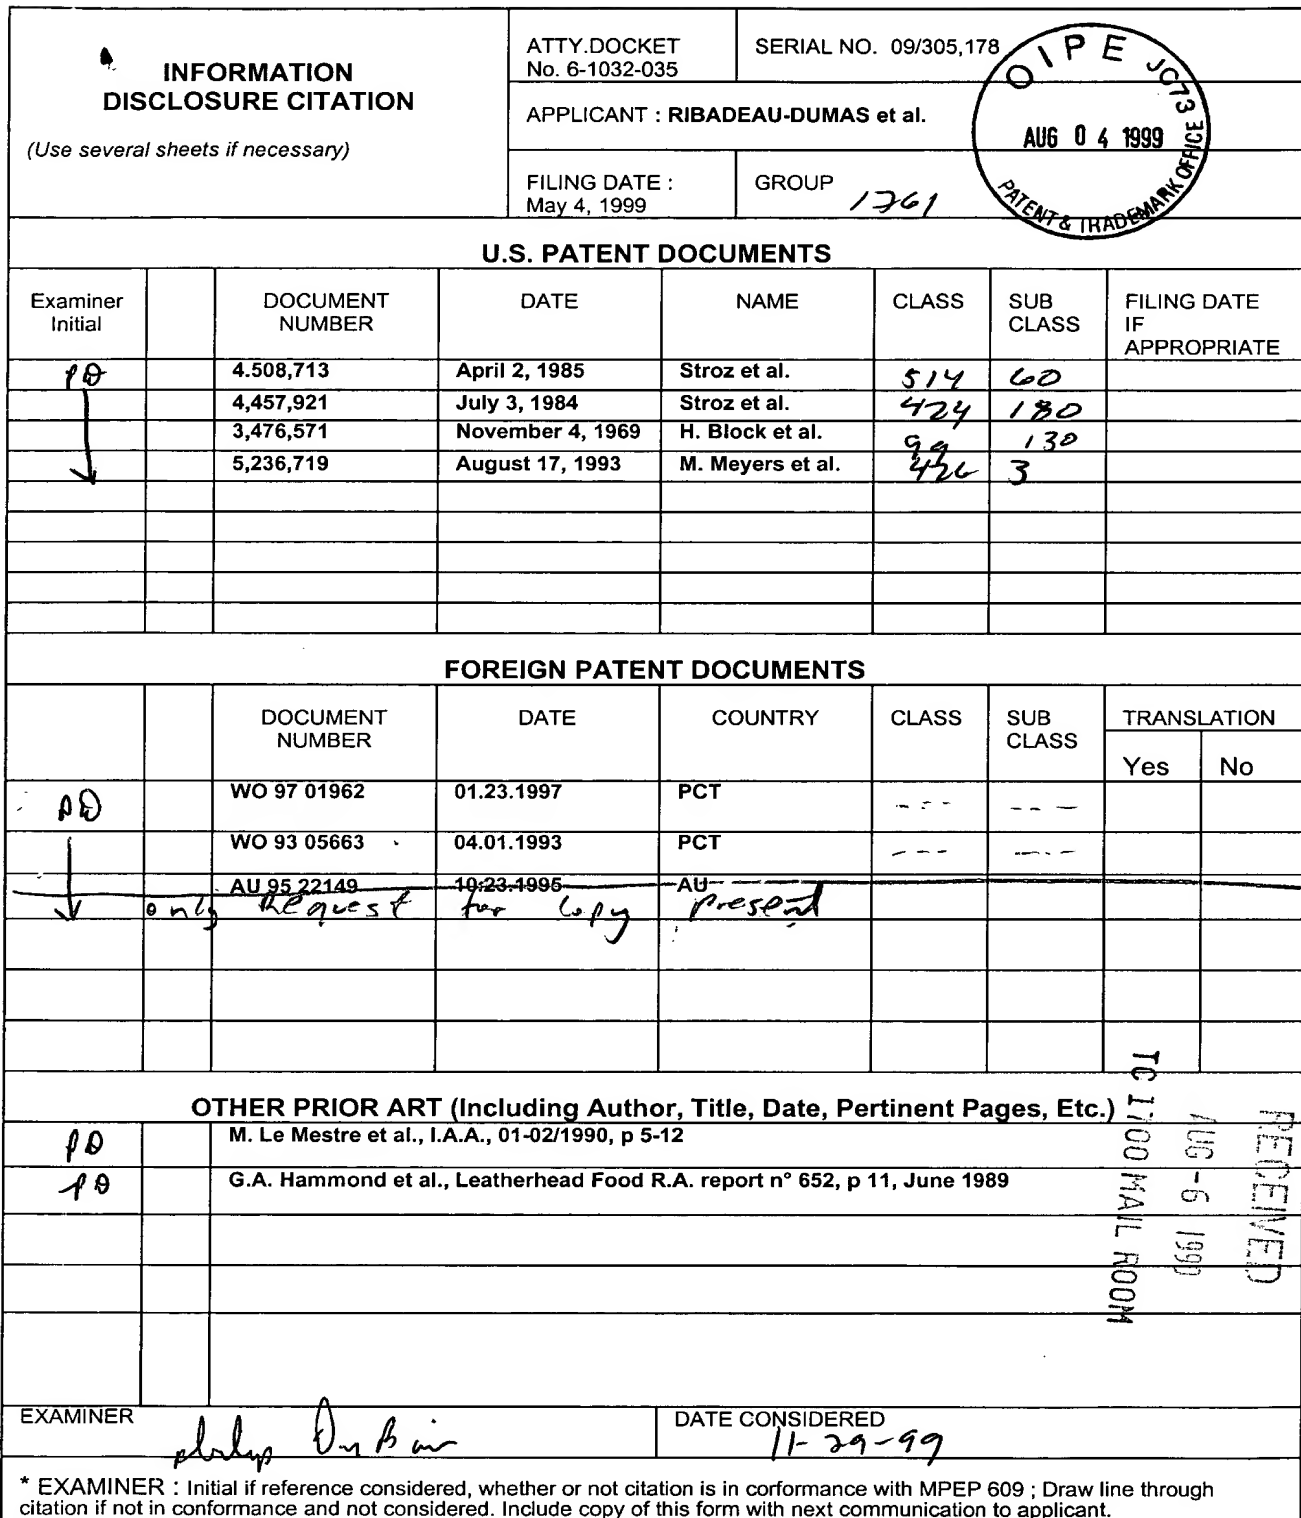 INFORMATION
DISCLOSURE CITATION
(Use several sheets if necessary)
ATTY.DOCKET
No. 6-1032-035
SERIAL NO. 09/305,178
APPLICANT : RIBADEAU-DUMAS et al.
FILING DATE :
May 4, 1999
GROUP 1761
OIPE JC73
AUG 04 1999
PATENT & TRADEMARK OFFICE
U.S. PATENT DOCUMENTS
Examiner
Initial
DOCUMENT
NUMBER
DATE
NAME
CLASS
SUB
CLASS
FILING DATE
IF
APPROPRIATE
PD 4.508,713 April 2, 1985 Stroz et al. 514 60
4,457,921 July 3, 1984 Stroz et al. 424 180
3,476,571 November 4, 1969 H. Block et al. 99 130
5,236,719 August 17, 1993 M. Meyers et al. 426 3
FOREIGN PATENT DOCUMENTS
DOCUMENT
NUMBER
DATE
COUNTRY
CLASS
SUB
CLASS
TRANSLATION
Yes No
PD WO 97 01962 01.23.1997 PCT --- ---
WO 93 05663 04.01.1993 PCT --- ---
AU 95 22149 10:23.1995 AU
only Request for copy present
OTHER PRIOR ART (Including Author, Title, Date, Pertinent Pages, Etc.)
PD M. Le Mestre et al., I.A.A., 01-02/1990, p 5-12
PD G.A. Hammond et al., Leatherhead Food R.A. report n° 652, p 11, June 1989
RECEIVED
AUG -6 1999
TC 1700 MAIL ROOM
EXAMINER
DATE CONSIDERED
11-29-99
* EXAMINER : Initial if reference considered, whether or not citation is in corformance with MPEP 609 ; Draw line through
citation if not in conformance and not considered. Include copy of this form with next communication to applicant.